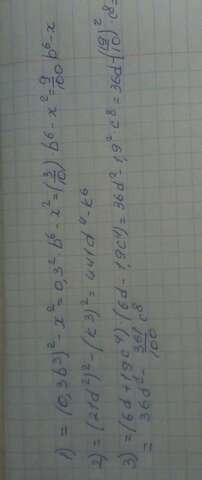 1) = (0,3b³)² - x² = 0,3² · b⁶ - x² = (3/10)² · b⁶ - x² = 9/100 b⁶ - x
2) = (21d²)² - (k3)² = 441d⁴ - k⁶
3) = (6d + 1,9c⁴) · (6d - 1,9c⁴) = 36d² - 1,9² · c⁸ = 36d - (19/10)² · c⁸ =
= 36d² - 361/100 c⁸